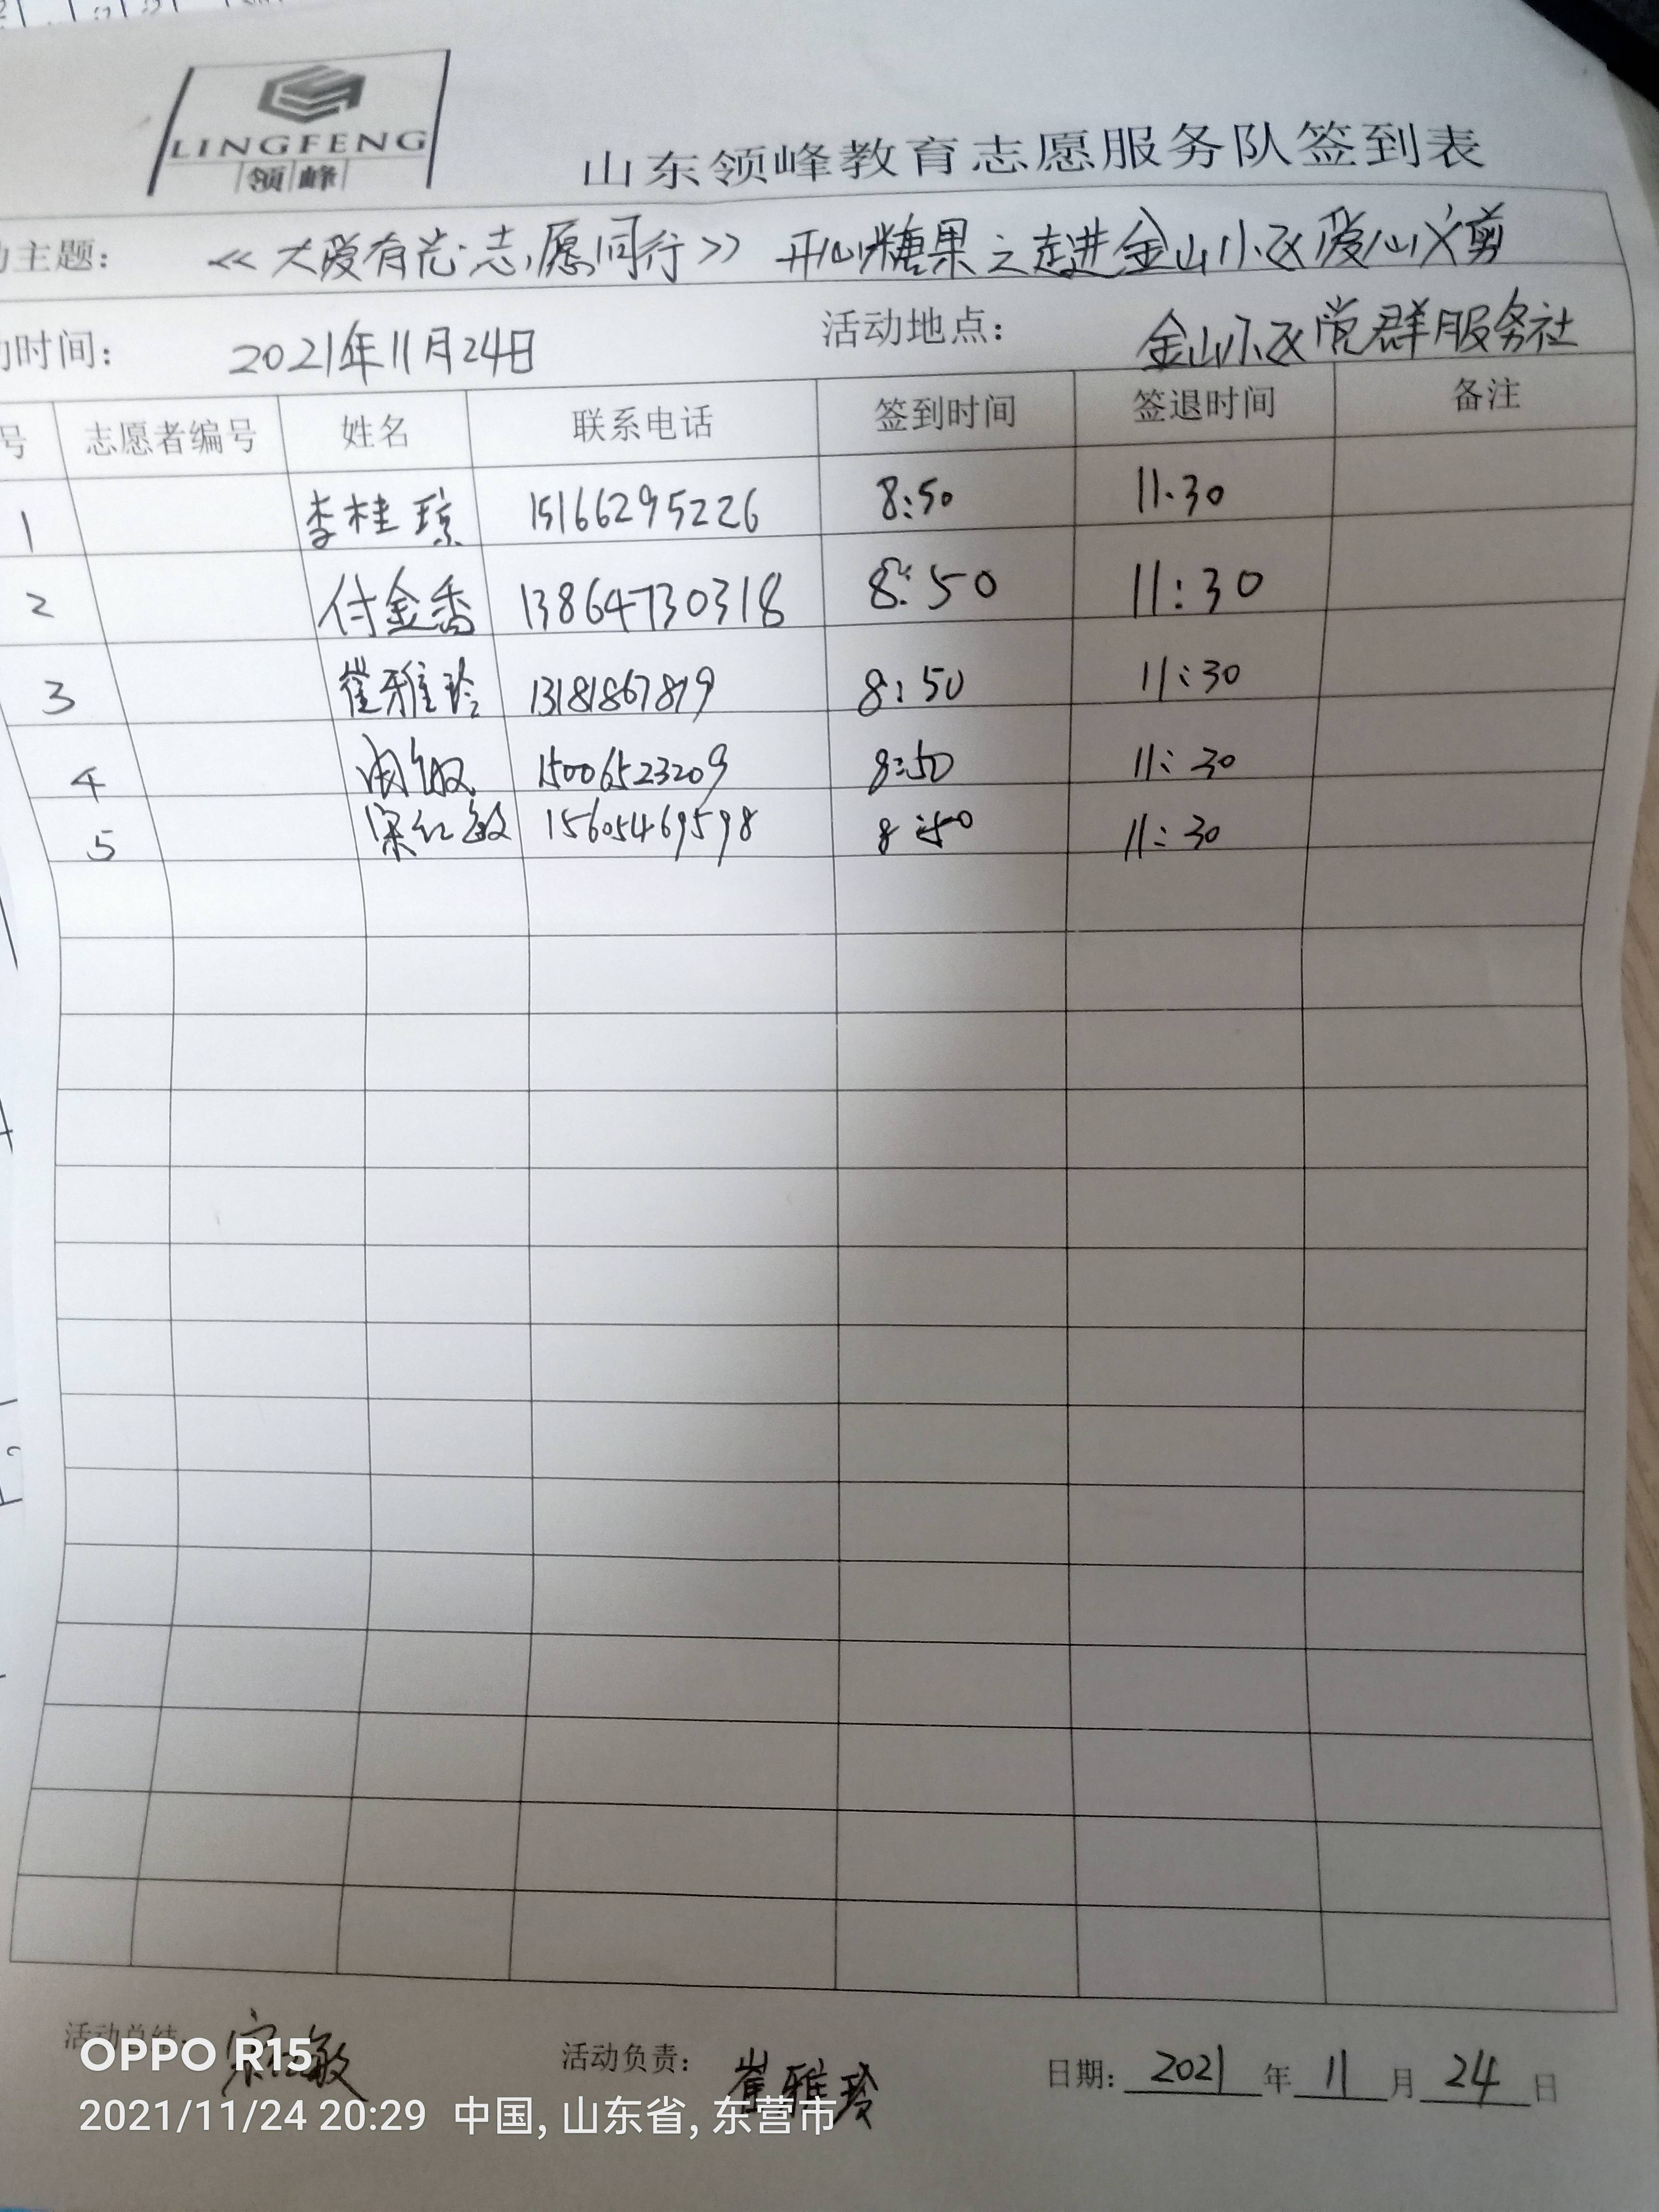 LINGFENG
领峰
山东领峰教育志愿服务队签到表
主题： 《大爱有光·志愿同行》 开心糖果之走进金山小区爱心义剪
时间： 2021年11月24日 活动地点： 金山小区党群服务社
号 志愿者编号 姓名 联系电话 签到时间 签退时间 备注
1 李桂琼 15166295226 8:50 11.30
2 付金香 13864730318 8:50 11:30
3 崔雅玲 13181867819 8:50 11:30
4 敏 15006523209 8:50 11:30
5 宋红敏 15605469598 8:50 11:30
活动总结： 宋红敏 活动负责： 崔雅玲 日期： 2021 年 11 月 24 日
OPPO R15
2021/11/24 20:29 中国, 山东省, 东营市